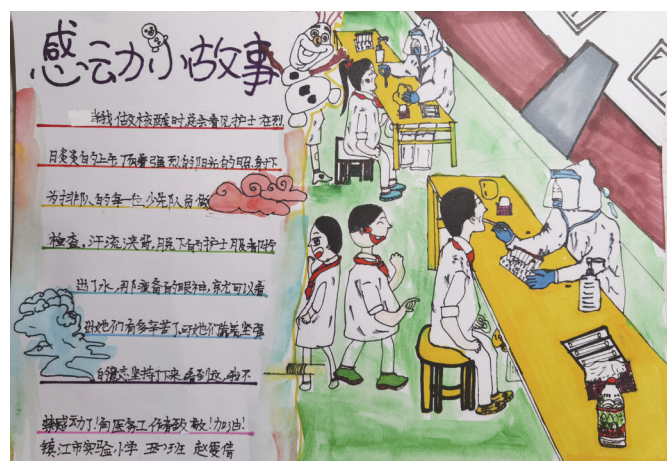 感动小故事
当我做核酸时总会看见护士在烈
日炎炎的上午顶着强烈的阳光的照射下
为排队的每一位少先队员做
检查,汗流浃背,脱下的护士服都能
出了水,那疲惫的眼神,就可以看
出她们有多辛苦了,可她们靠着坚强
的意志坚持下来,看到这,我不
禁感动了!向医务工作者致敬!加油!
镇江市实验小学 赵雯倩